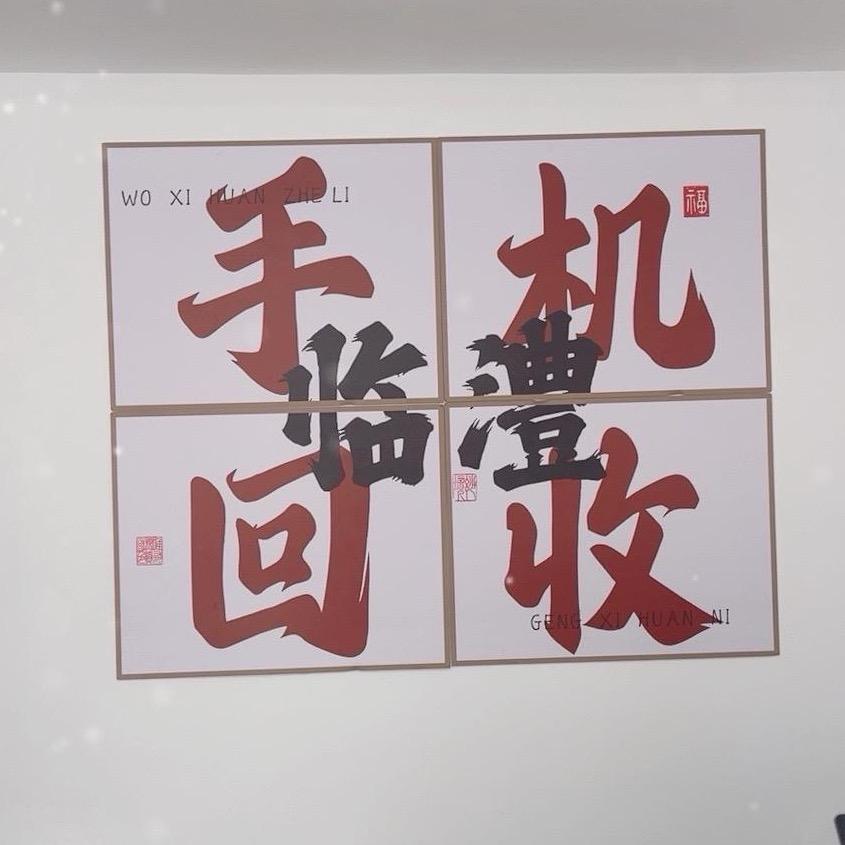 WO XI HUAN ZHE LI
手机
福
临澧
回收
GENG XI HUAN NI